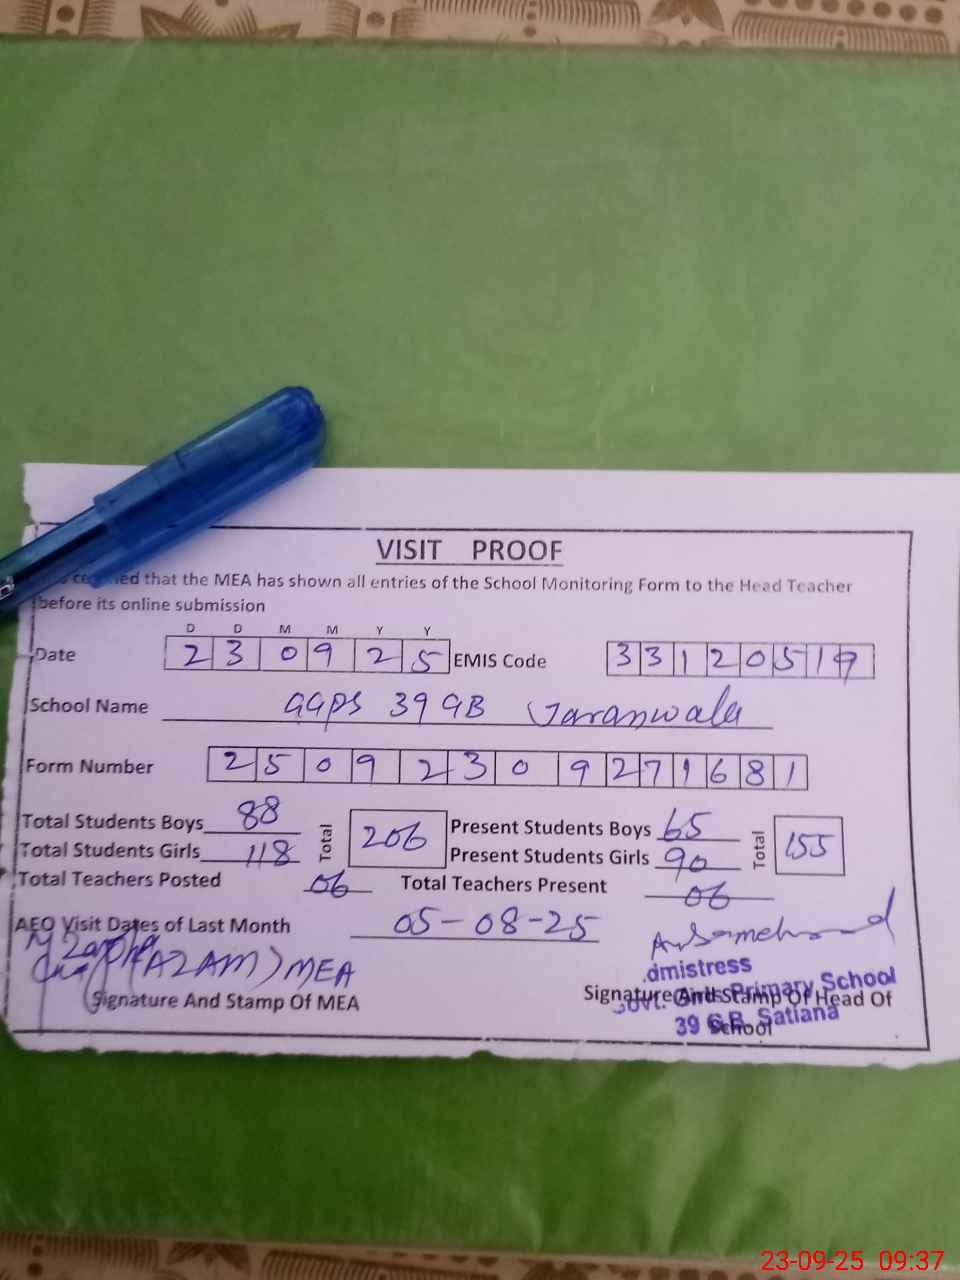 VISIT PROOF
ed that the MEA has shown all entries of the School Monitoring Form to the Head Teacher
before its online submission
D D M M Y Y
Date 2 3 0 9 2 5 EMIS Code 3 3 1 2 0 5 1 9
School Name GGPS 39 GB Jaranwala
Form Number 2 5 0 9 2 3 0 9 2 7 1 6 8 1
Total Students Boys 88 Total 206 Present Students Boys 65 Total 155
Total Students Girls 118 Present Students Girls 90
Total Teachers Posted 06 Total Teachers Present 06
AEO Visit Dates of Last Month 05-08-25
(AZAM) MEA
Signature And Stamp Of MEA
dmistress
Signature And Stamp Of Head Of School
Govt. Girls Primary School
39 G.B. Satiana
23-09-25 09:37